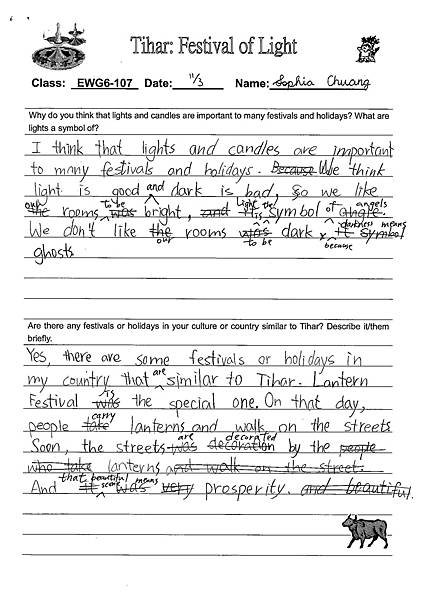 Tihar: Festival of Light
Class: EWG6-107 Date: 11/3 Name: Sophia Chuang
Why do you think that lights and candles are important to many festivals and holidays? What are
lights a symbol of?
I think that lights and candles are important
to many festivals and holidays. Because We think
light is good and dark is bad, so we like
our to be Light is the of angels
the rooms was bright, and It is symbol angle.
We don't like the rooms was dark, It symbol
our to be because darkness means
ghosts
Are there any festivals or holidays in your culture or country similar to Tihar? Describe it/them
briefly.
Yes, there are some festivals or holidays in
my country that are similar to Tihar. Lantern
Festival was is the special one. On that day,
people take carry lanterns and walk on the streets
Soon, the streets was are decoration decorated by the people
who take lanterns and walk on the street.
that beautiful scene means
And it was very prosperity. and beautiful.